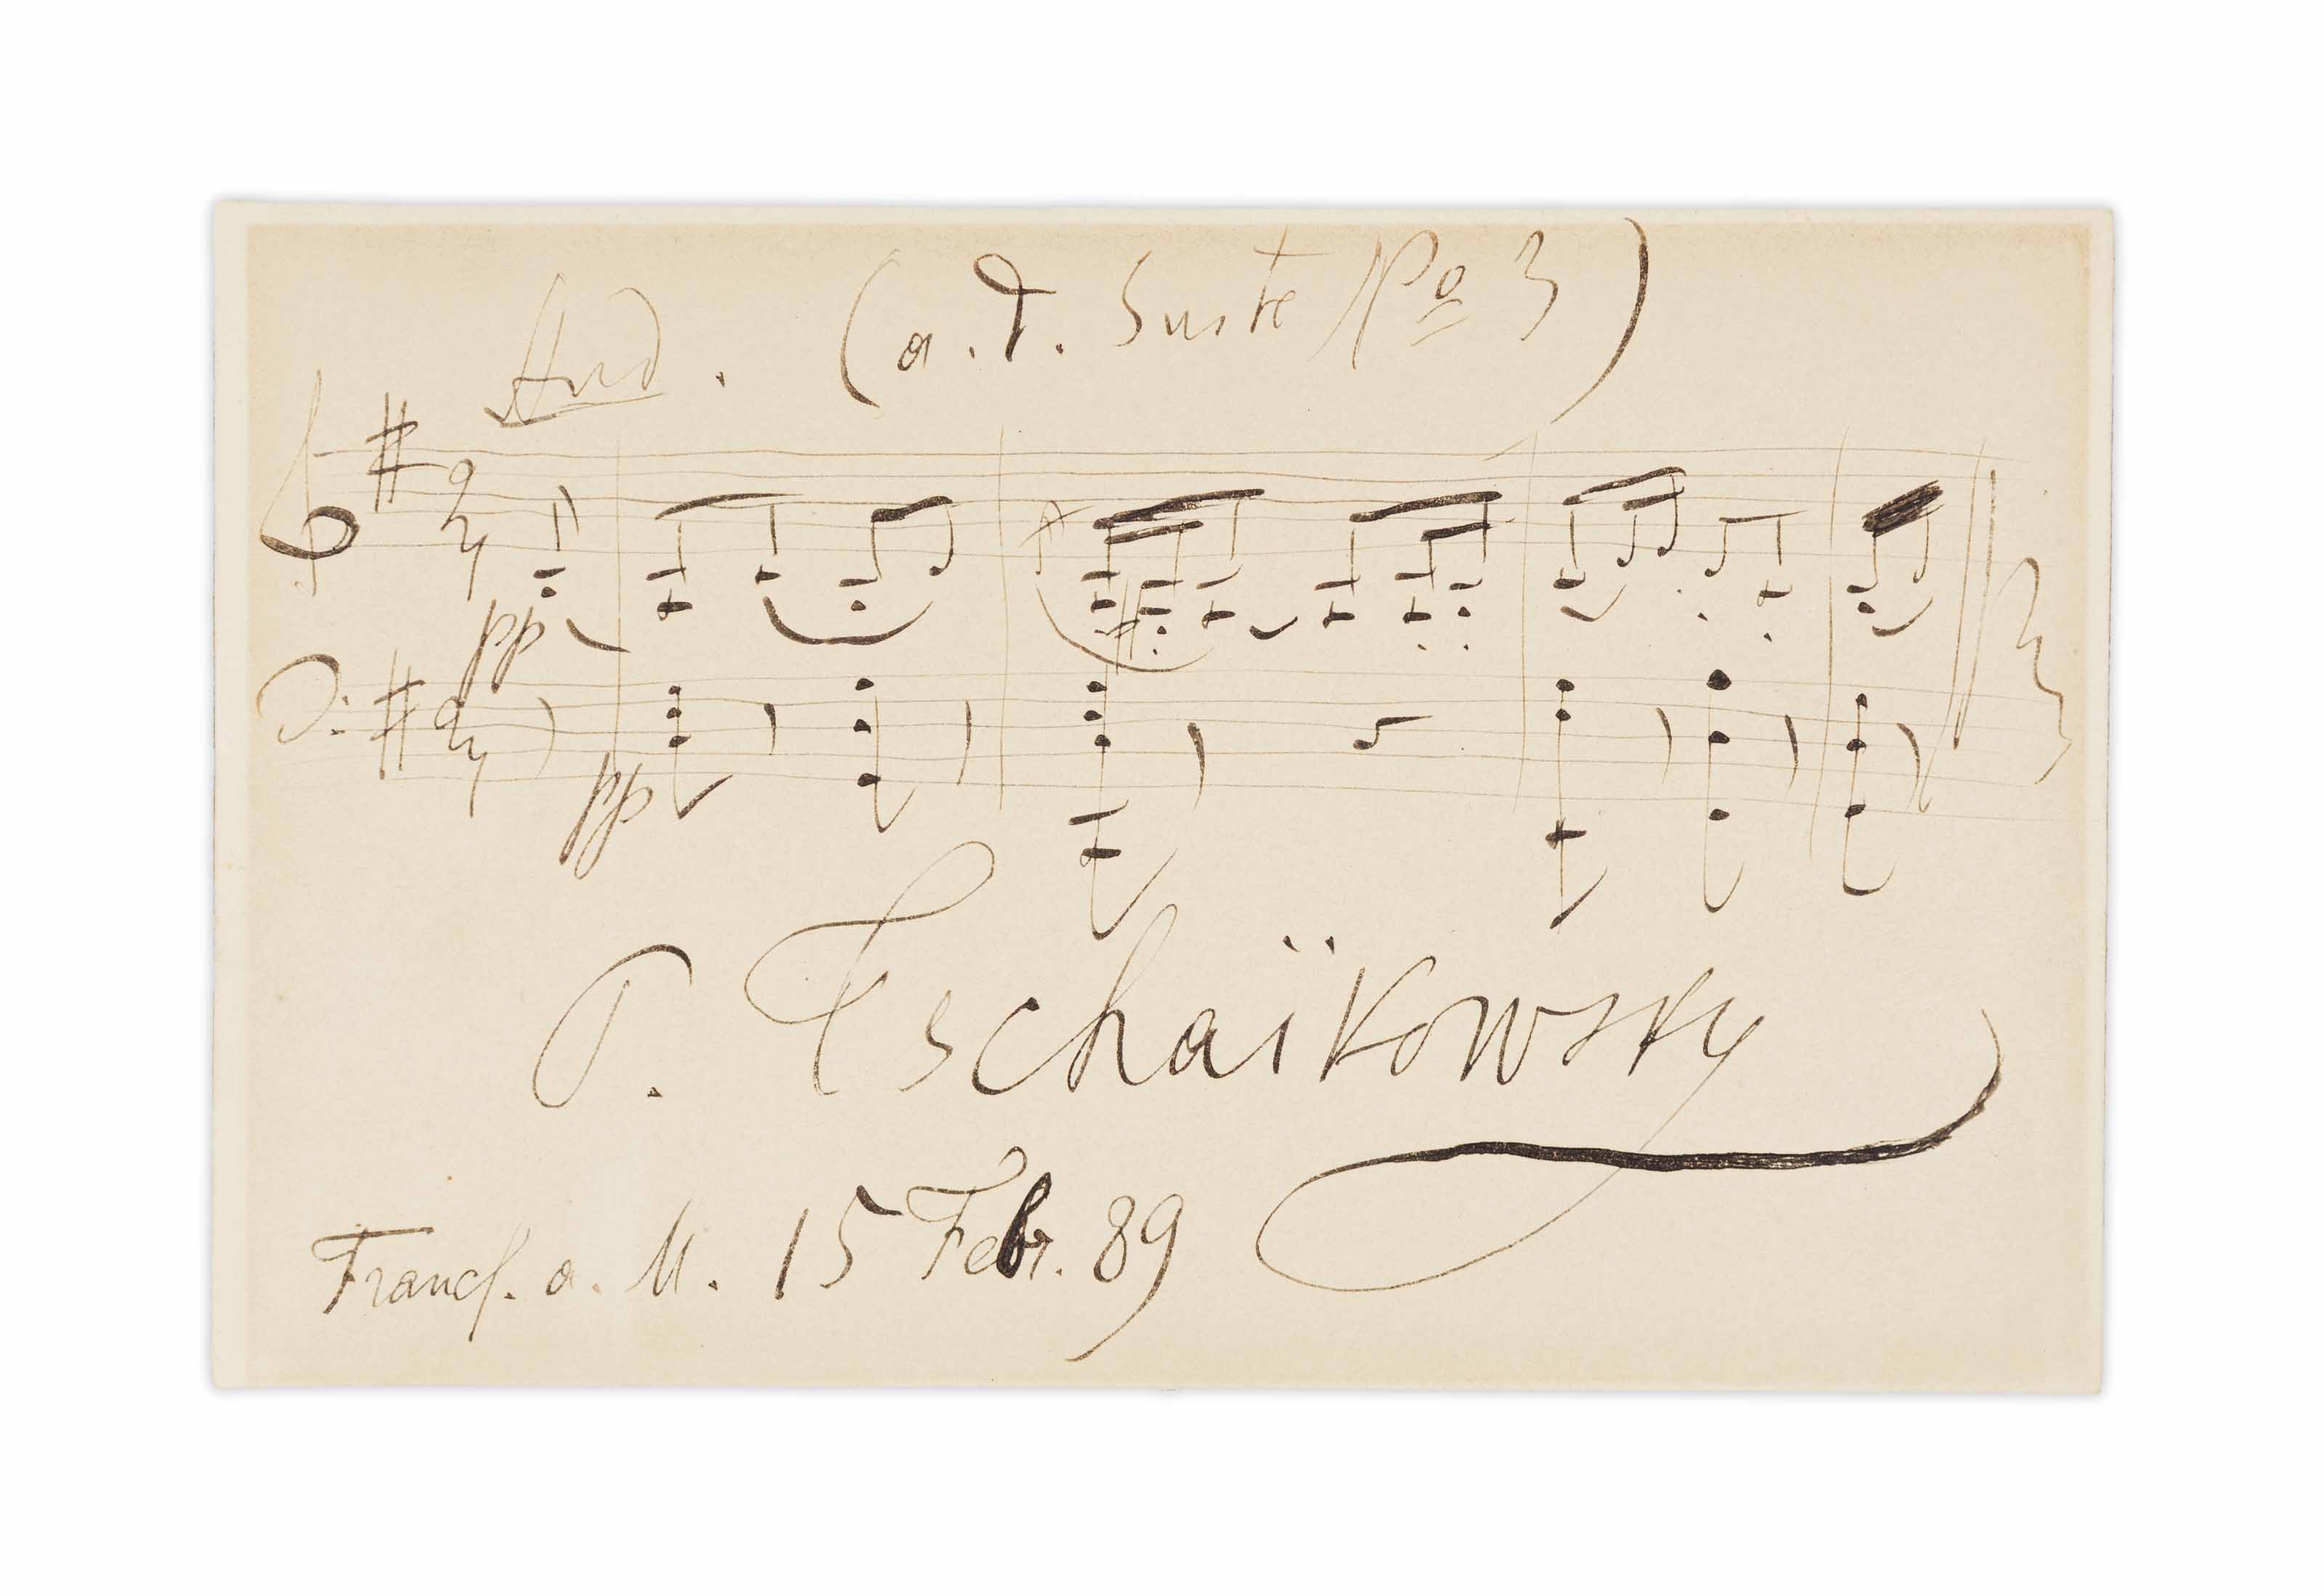 And. (a. d. Suite No 3)
2
4
pp
2
4
pp
P. Tschaïkowsky
Francf. a. M. 15 Febr. 89